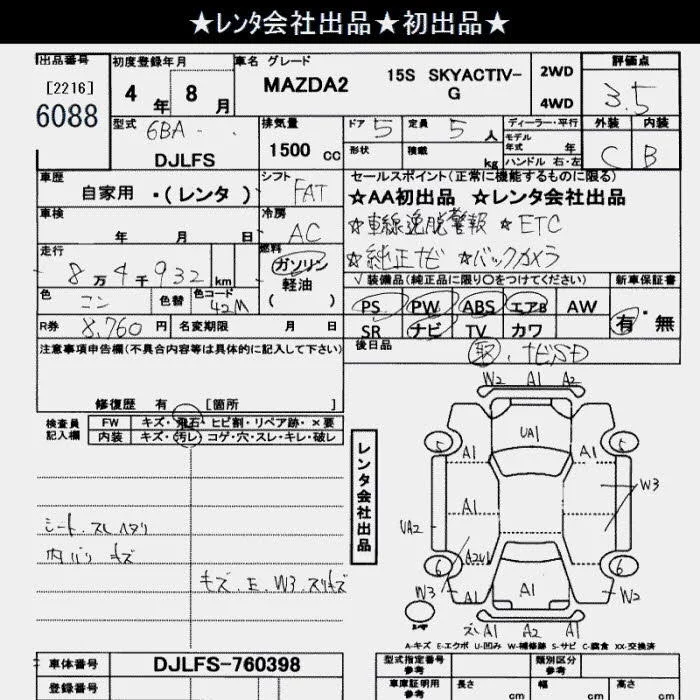 ★レンタ会社出品★初出品★
出品番号 初度登録年月 車名 グレード 評価点
[2216]
6088
4年 8月
MAZDA2 15S SKYACTIV-G
2WD
4WD
3.5
外装 内装
C B
型式 6BA - DJLFS
排気量 1500 cc
ドア 5 定員 5 人
形状 積載 kg
ディーラー・平行
モデル年式 年
ハンドル 右・左
車歴
自家用 ・(レンタ )
シフト FAT
セールスポイント(正常に機能するものに限る)
★AA初出品 ★レンタ会社出品
☆車線逸脱警報 ☆ETC
☆純正ナビ ☆バックカメラ
車検 年 月 日
冷房 AC
走行 8万4千932 km
燃料 ガソリン
軽油
( )
色 コン 色替 色コード 42M
√装備品(純正品に限り○をつけてください) 新車保証書
PS PW ABS エアB AW
SR ナビ TV カワ
有・無
R券 8,760円 名変期限 月 日
後日品 取,ナビSD
注意事項申告欄(不具合内容等は具体的に記入して下さい)
修復歴 有 [箇所 ]
検査員記入欄
FW キズ・飛石・ヒビ割・リペア跡・×要
内装 キズ・汚レ・コゲ・穴・スレ・キレ・破レ
シート.スレ ヘタリ
内バリ キズ
キズ.E.W3.スリキズ
レンタ会社出品
W2 A1 A2
UA1
5 A1 A1 5
A1 A1 W3
UA2
6 A2U1 A1 6
W3 A1 A1 A1 W2
A1 A2 A1
A-キズ E-エクボ U-凹み W-補修跡 S-サビ C-腐食 XX-交換済
車体番号 DJLFS-760398
登録番号
型式指定番号 参考 類別区分 参考
車庫証明用 参考 長さ cm 幅 cm 高さ cm